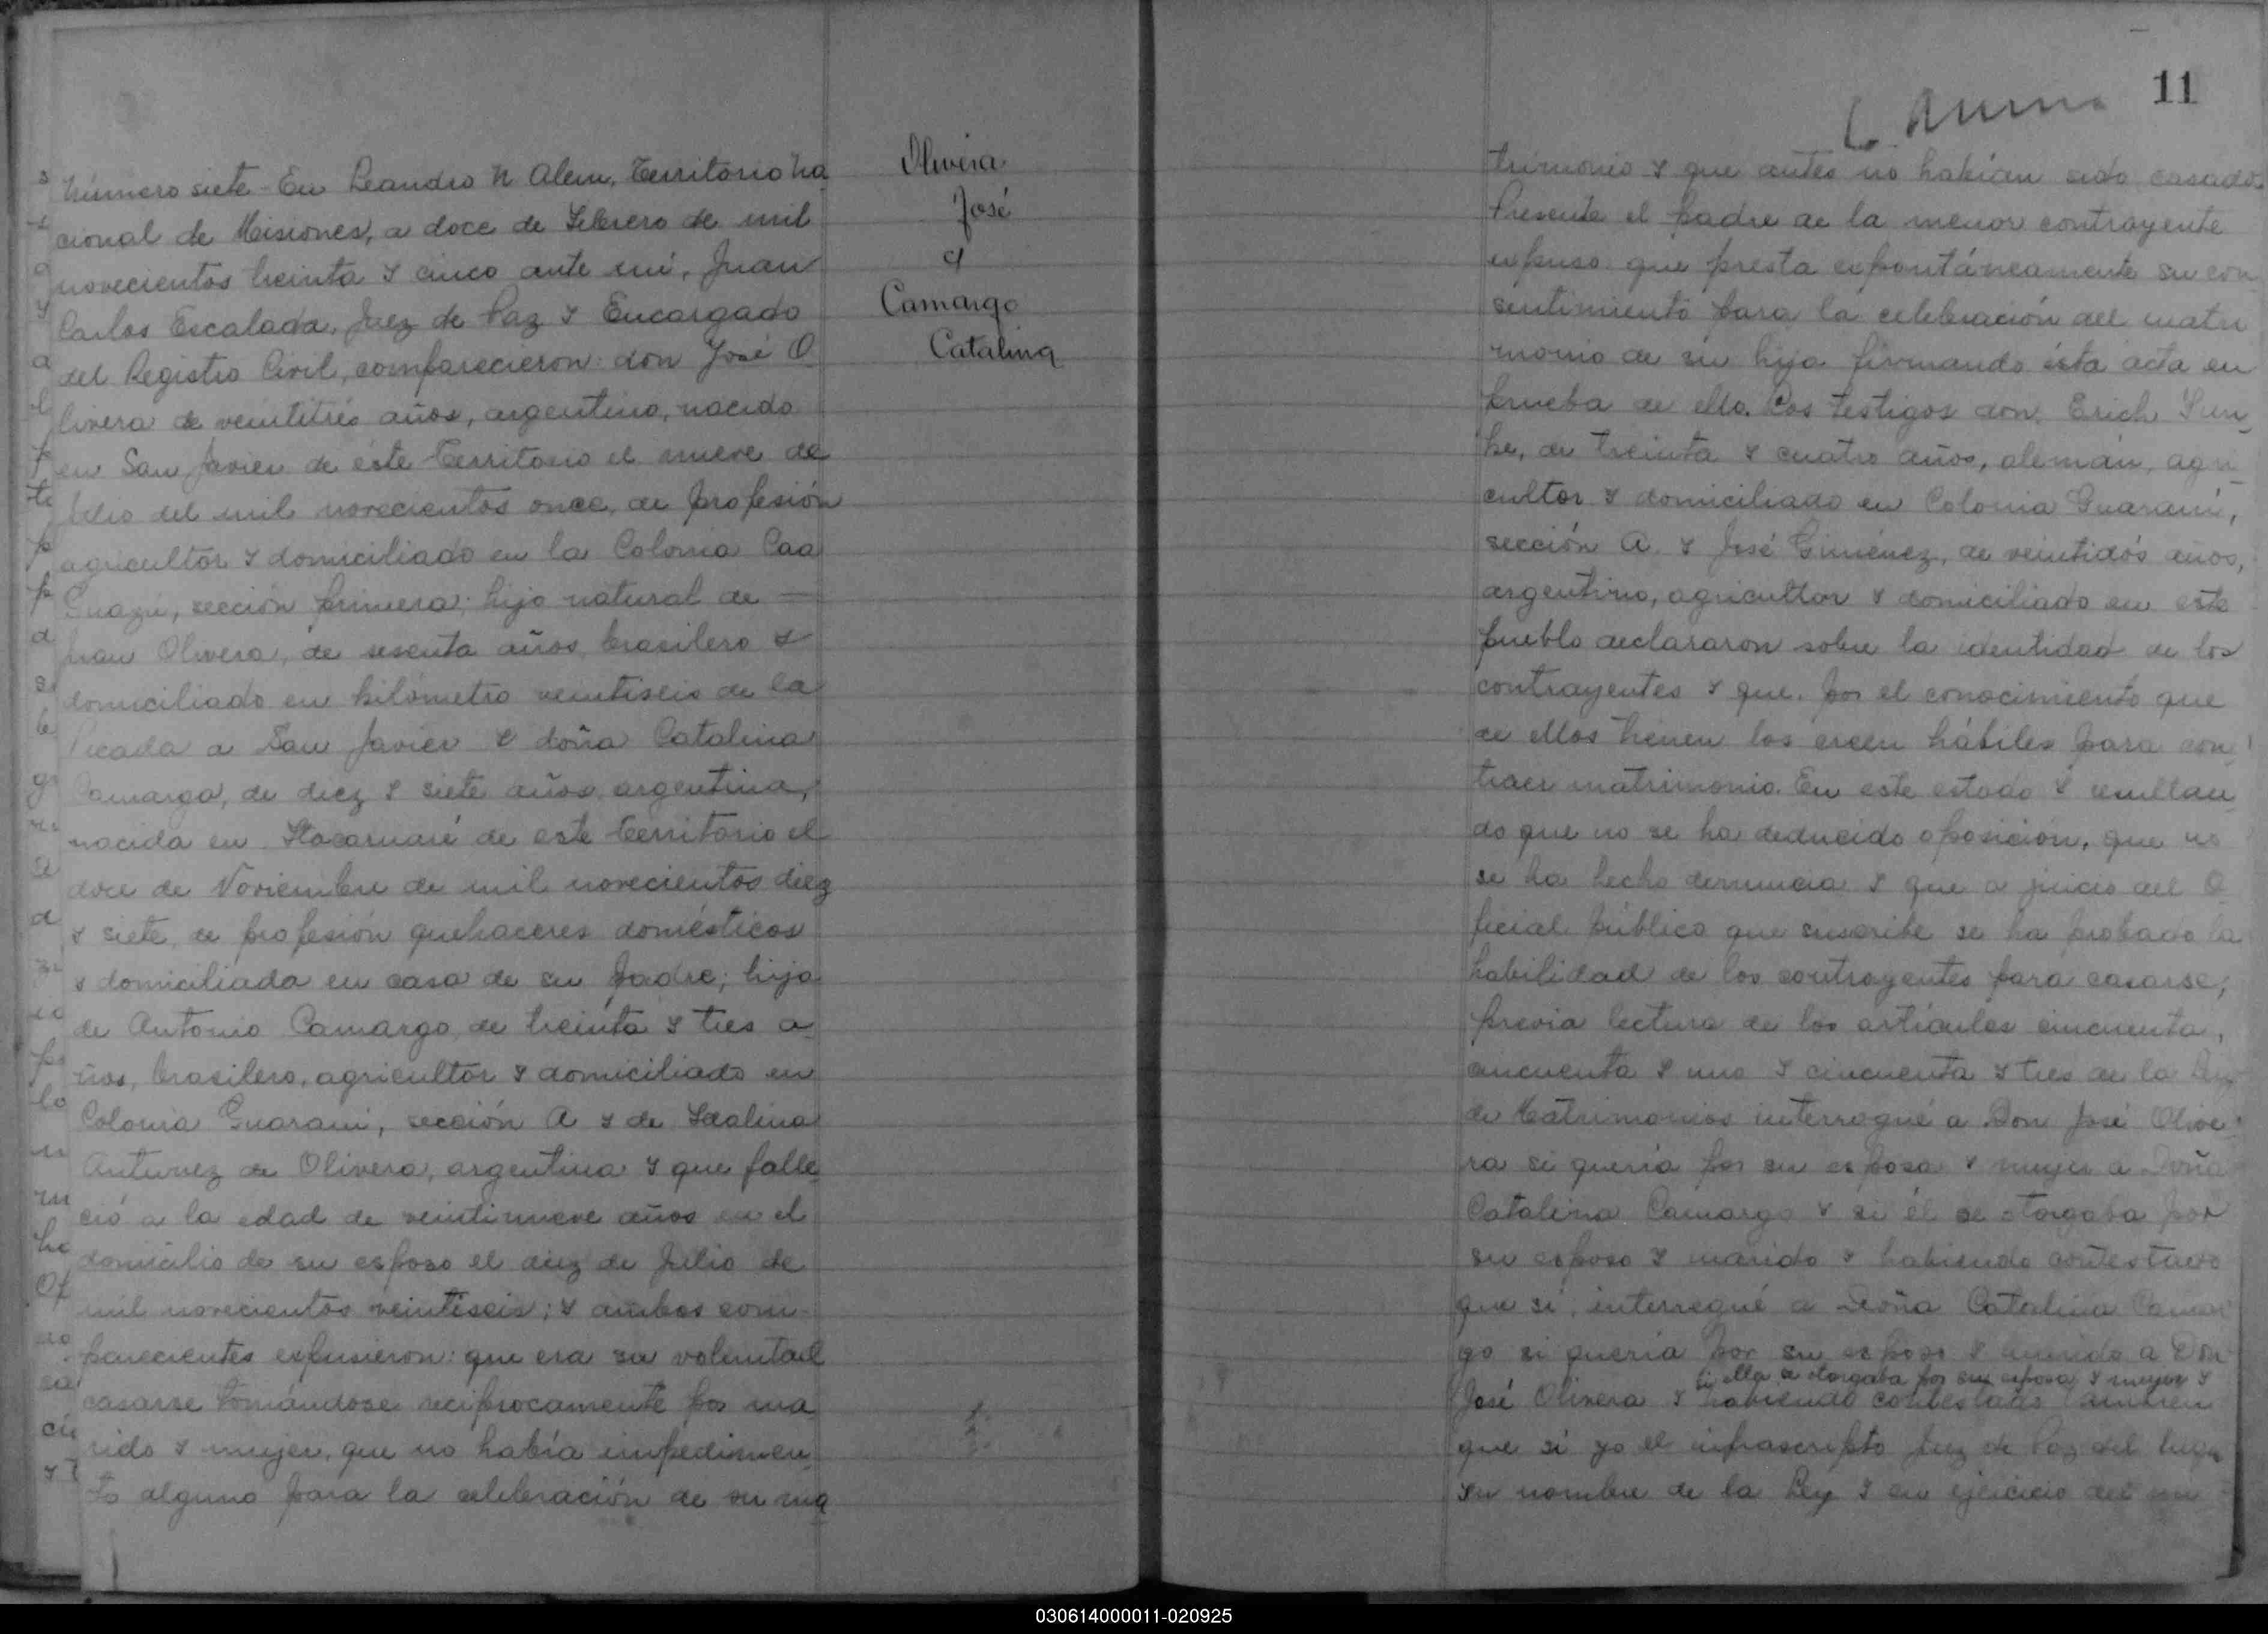 Número siete - En Leandro N Alem, Territorio Na
cional de Misiones, a doce de Febrero de mil
novecientos treinta y cinco ante mí, Juan
Carlos Escalada, Juez de Paz y Encargado
del Registro Civil, comparecieron: don José O
livera de veintitrés años, argentino, nacido
en San Javier de éste Territorio el nueve de
Julio del mil novecientos once, de profesión
agricultor y domiciliado en la Colonia Caa
Guazú, sección primera; hijo natural de —
Juan Olivera, de sesenta años, brasilero y
domiciliado en kilómetro veintiseis de la
Picada a San Javier y doña Catalina
Camargo, de diez y siete años, argentina,
nacida en Itacaruaré de este territorio el
doce de Noviembre de mil novecientos diez
y siete, de profesión quehaceres domésticos
y domiciliada en casa de su padre; hija
de Antonio Camargo, de treinta y tres a
ños, brasilero, agricultor y domiciliado en
Colonia Guaraní, sección A y de
Antunez de Olivera, argentina y que falle
ció a la edad de veintinueve años en el
domicilio de su esposo el diez de Julio de
mil novecientos veintiseis; y ambos com-
parecientes expusieron: que era su voluntad
casarse tomándose recíprocamente por ma
rido y mujer, que no había impedimen
to alguno para la celebración de su ma
Olivera
José
c/
Camargo
Catalina
11
trimonio y que antes no habían sido casados
Presente el padre de la menor contrayente
expuso que presta espontáneamente su con
sentimiento para la celebración del matri
monio de su hija firmando ésta acta en
prueba de ello. Los testigos don Erich
de treinta y cuatro años, alemán, agri
cultor y domiciliado en Colonia Guaraní,
sección A. y José Giménez, de veintidós años,
argentino, agricultor y domiciliado en este
pueblo declararon sobre la identidad de los
contrayentes y que por el conocimiento que
de ellos tienen los creen hábiles para con
traer matrimonio. En este estado y resultan
do que no se ha deducido oposición, que no
se ha hecho denuncia y que a juicio del O
ficial Público que suscribe se ha probado la
habilidad de los contrayentes para casarse,
previa lectura de los artículos cincuenta,
cincuenta y uno y cincuenta y tres de la Ley
de Matrimonios interrogué a Don José Olive
ra si quería por su esposa y mujer a Doña
Catalina Camargo y si él se otorgaba por
su esposo y marido y habiendo contestado
que si, interrogué a Doña Catalina Camar
go si quería por su esposo y marido a Don
si ella se otorgaba por su esposa y mujer y
José Olivera y habiendo contestado también
que si yo el infrascripto Juez de Paz del lugar
en nombre de la Ley y en ejercicio del mi
030614000011-020925